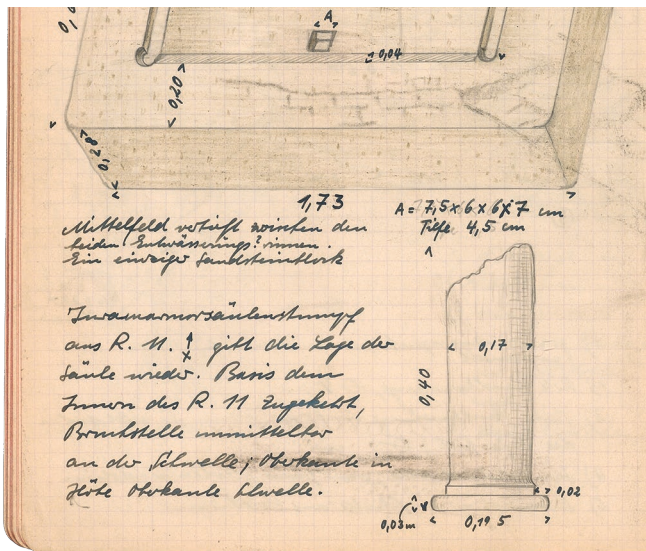 A
0,04
0,20
0,28
1,73
A = 7,5 x 6 x 6 x 7 cm
Tiefe 4,5 cm
Mittelfeld vertieft zwischen den
beiden Entwässerungs?rinnen.
Ein einziger Sandsteinblock
Juramarmorsäulenstumpf
aus R. 11. x gibt die Lage der
Säule wieder. Basis dem
Innern des R. 11 zugekehrt,
Bruchstelle unmittelbar
an der Schwelle, Oberkante in
Höhe Oberkante Schwelle.
0,17
0,40
0,02
0,03m
0,195